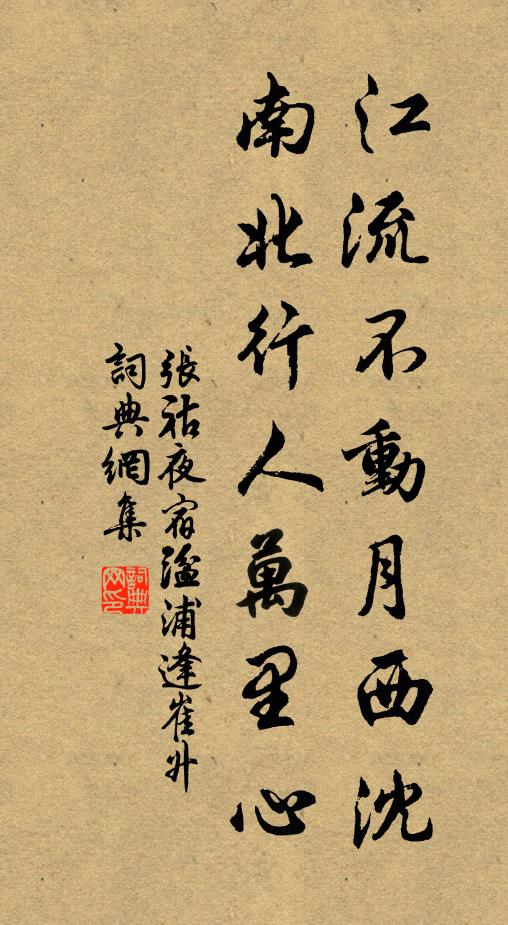 江流不動月西沈
南北行人萬里心
張祜夜宿湓浦逢崔升
詞典網集
詞典网印